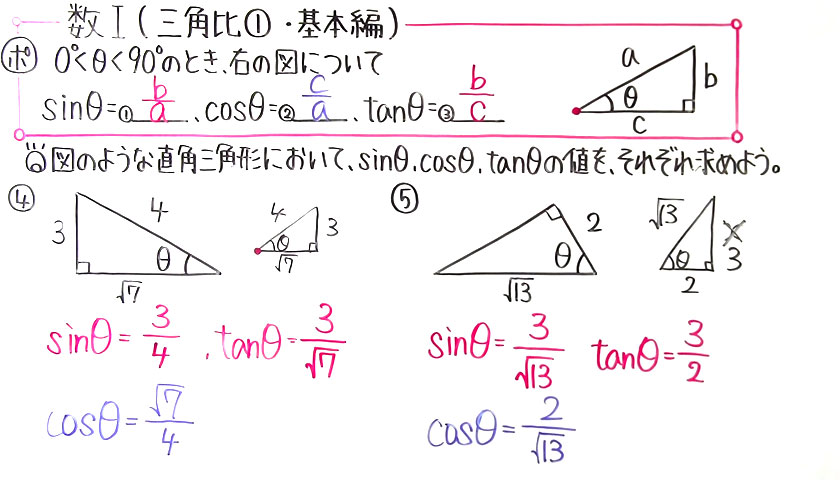 数Ⅰ(三角比①・基本編)
ポ 0°<θ<90°のとき、右の図について
sinθ=① b/a 、cosθ=② c/a 、tanθ=③ b/c
a
b
θ
c
図のような直角三角形において、sinθ、cosθ、tanθの値を、それぞれ求めよう。
④
3
4
θ
√7
4
3
θ
√7
sinθ=3/4 、tanθ=3/√7
cosθ=√7/4
⑤
2
θ
√13
√13
x
3
θ
2
sinθ=3/√13 tanθ=3/2
cosθ=2/√13